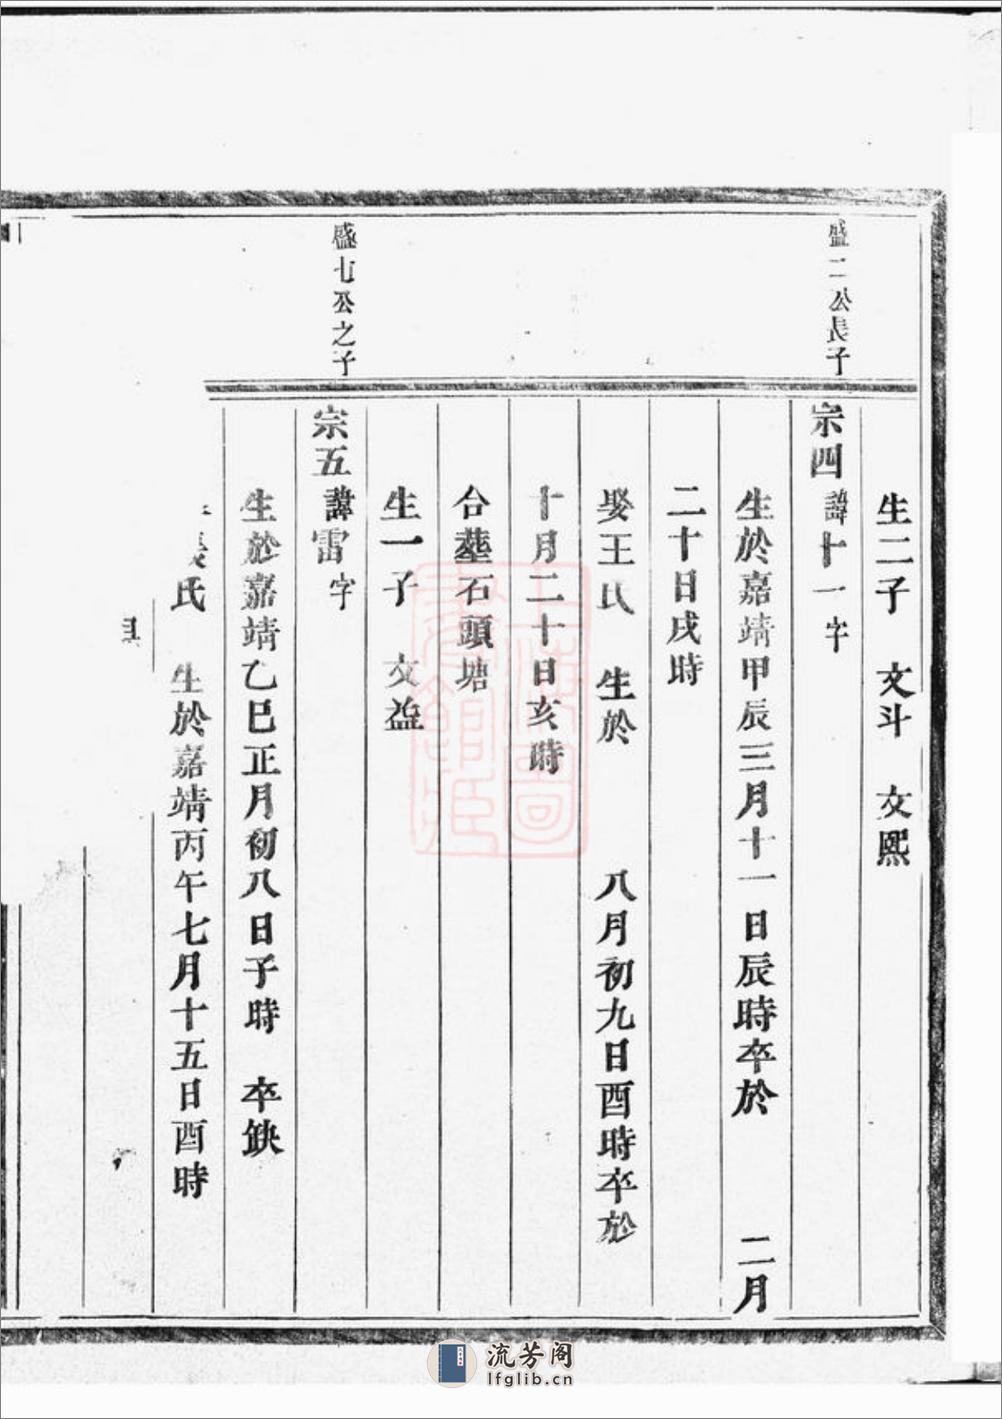 生二子 文斗 文熙
盛二公長子
宗四諱十一字
生於嘉靖甲辰三月十一日辰時卒於 二月
二十日戌時
娶王氏 生於 八月初九日酉時卒於
十月二十日亥時
合塟石頭塘
生一子 文益
盛七公之子
宗五諱雷字
生於嘉靖乙巳正月初八日子時 卒缺
氏 生於嘉靖丙午七月十五日酉時
上海圖書館藏
流芳阁
lfglib.cn